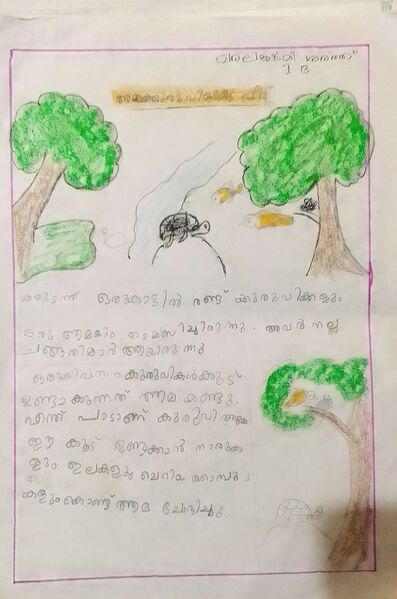 1 B
അമ്മക്കുരുവിയുടെ വീട്
ഒരിടത്ത് ഒരുകാട്ടിൽ രണ്ട് ക്കുരുവികളും
ഒരു ആമയും താമസിച്ചിരുന്നു. അവർ നല്ല
ചങ്ങതിമാർ ആയിരുന്നു
ഒരുദിവസം കുരുവികൾക്കൂട്
ഉണ്ടാകുന്നത് ആമ കണ്ടു.
എന്ത് പാടാണ് കുരുവി
ഈ കൂട് ഉണ്ടക്കാൻ നാരുക
ളും ഇലകളും ചെറിയ
കളുംകൊണ്ട് ആമ ചോദിച്ചു.